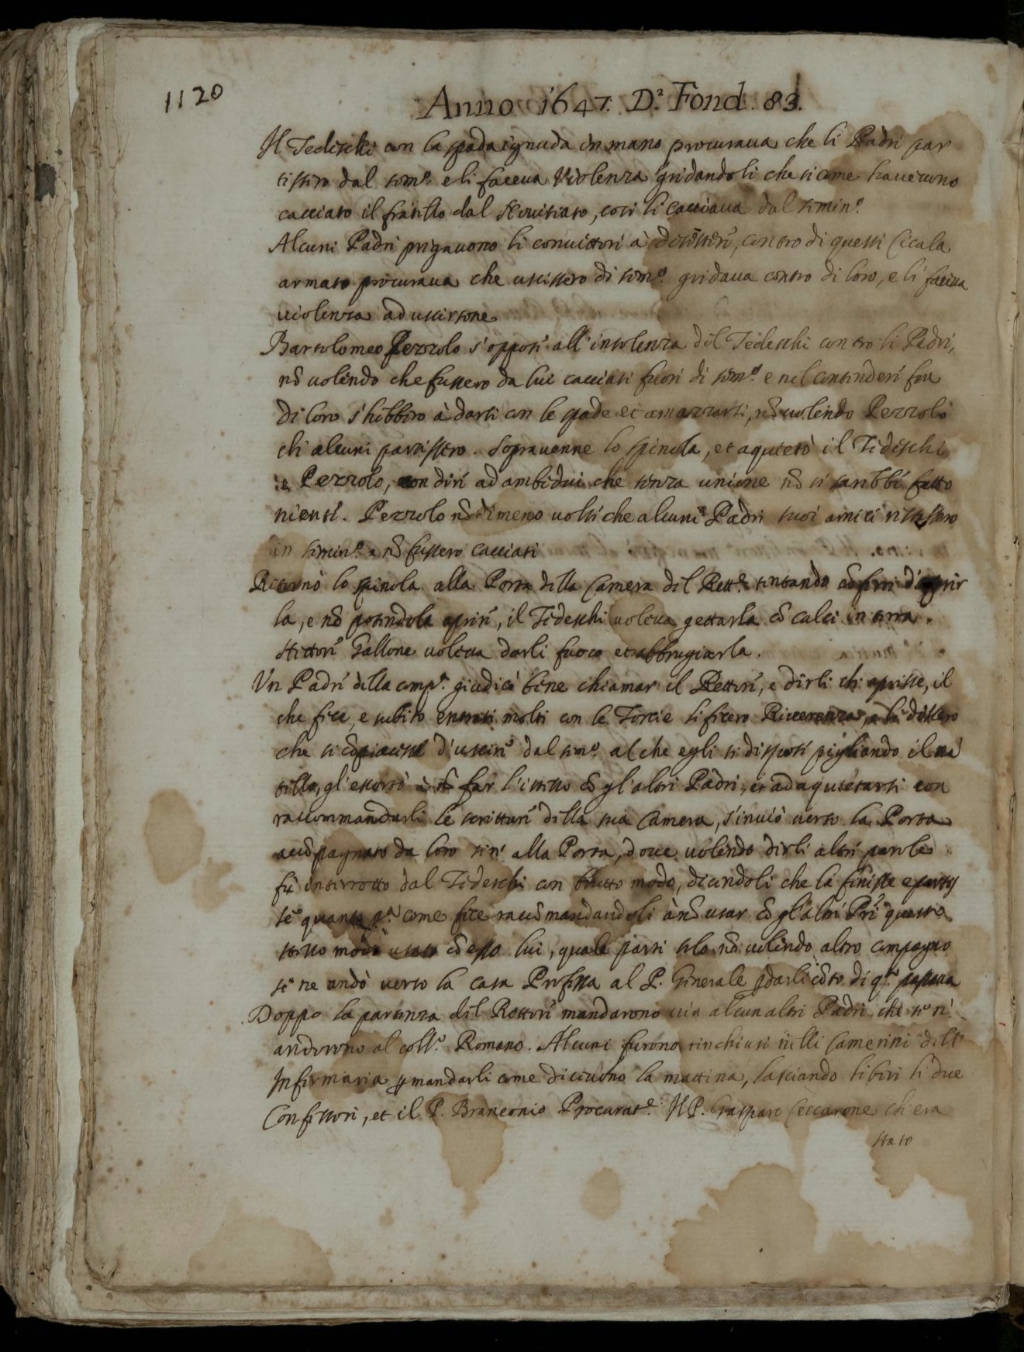 1120
Anno 1647. D.ª Fond. 83.
Il Tedeschi con la spada ignuda in mano procuraua che li Padri par
tissero dal sem.º e li faceua Violenza gridandoli che si come haueuono
cacciato il fratello dal Nouitiato, cosi li cacciaua dal semin.º
Alcuni Padri pregauono li conuittori à contro di questi Cicala
armato procuraua che uscissero di sem.º gridaua contro di loro, e li faceua
uiolenza ad uscirsene
Bartolomeo Pezzolo s'opposi all'insolenza del Tedeschi contro li Padri,
nõ uolendo che fussero da lui cacciati fuori di sem.º e nel contenderi fra
di loro s'hebbero à darsi con le spade et amazzarsi, nõ uolendo Pezzolo
chi alcuni partissero. Soprauenne lo spinola, et aquietò il Tedeschi
e Pezzolo, con diri ad ambidui che senza unione nõ si sarebbi fatto
nienti. Pezzolo nõdimeno uolsi che alcuni Padri suoi amici restassero
in semin.º e nõ fussero cacciati
Ritornò lo spinola alla Porta della Camera del Rett.e tentando cõ ferri d'aprir
la, e nõ potendola apriri, il Tedeschi uoleua gettarla cõ calci in terra.
Hettori Gallone uoleua darli fuoco et abbrugiarla.
Un Padri della comp.ª giudicò bene chiamar il Rettori, e dirli chi aprisse, il
che fece, e subito entrati molti con le Torcie li fecero Riuerenza, e li dissero
che si cõpiacesse d'usciri dal sem.º al che egli si disposi pigliando il mã
tello, gl'essortò à far l'istesso cõ gl'altri Padri, et ad aquietarsi con
raccommandarli le scritturi della sua Camera, s'inuiò uerso la Porta
accõpagnato da loro sin' alla Porta, doue uolendo dirli altri parole
fù interrotto dal Tedeschi con brutto modo, dicendoli che la finisse e partis
se quanto p.ª come fece raccõmandandoli à nõ usar cõ gl'altri Pri questo
stesso modo usato cõ esso lui, quale partì solo nõ uolendo altro compagno
se ne andò uerso la casa Professa al P. Generale p darli cõto di q.to passaua
Doppo la partenza del Rettori mandarono uia alcun altri Padri chi se ne
andorono al coll.º Romano. Alcuni furono rinchiusi nelli Camerini dell'
Infirmaria p mandarli come diceuono la mattina, lasciando liberi li due
Confessori, et il P. Branconio Procurat.e Il P. Gaspare Ceccarone ch'era
stato